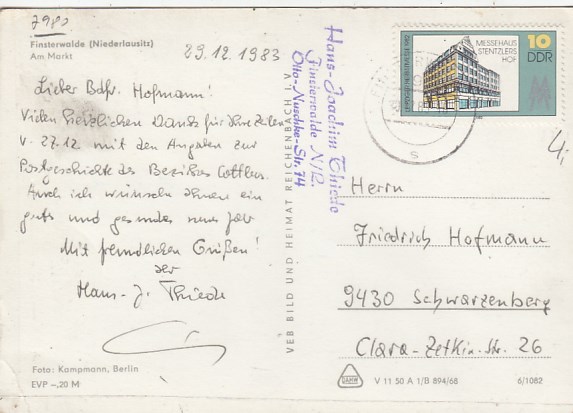 7980
Finsterwalde (Niederlausitz)
Am Markt
29.12.1983
Lieber Bdfr. Hofmann!
Vielen herzlichen Dank für Ihre Zeilen
v. 27.12. mit den Angaben zur
Postgeschichte des Bezirkes Cottbus.
Auch ich wünsche Ihnen ein
gutes und gesundes neues Jahr
Mit freundlichen Grüßen!
Ihr
Hans-J. Thiede
Foto: Kampmann, Berlin
EVP –,20 M
VEB BILD UND HEIMAT REICHENBACH I. V.
Hans-Joachim Thiede
Finsterwalde N/L.
Otto-Nuschke-Str. 74
MESSEHAUS
STENTZLERS
HOF
10
DDR
4,
Herrn
Friedrich Hofmann
9430 Schwarzenberg
Clara-Zetkin-Str. 26
V 11 50 A 1/B 894/68
6/1082